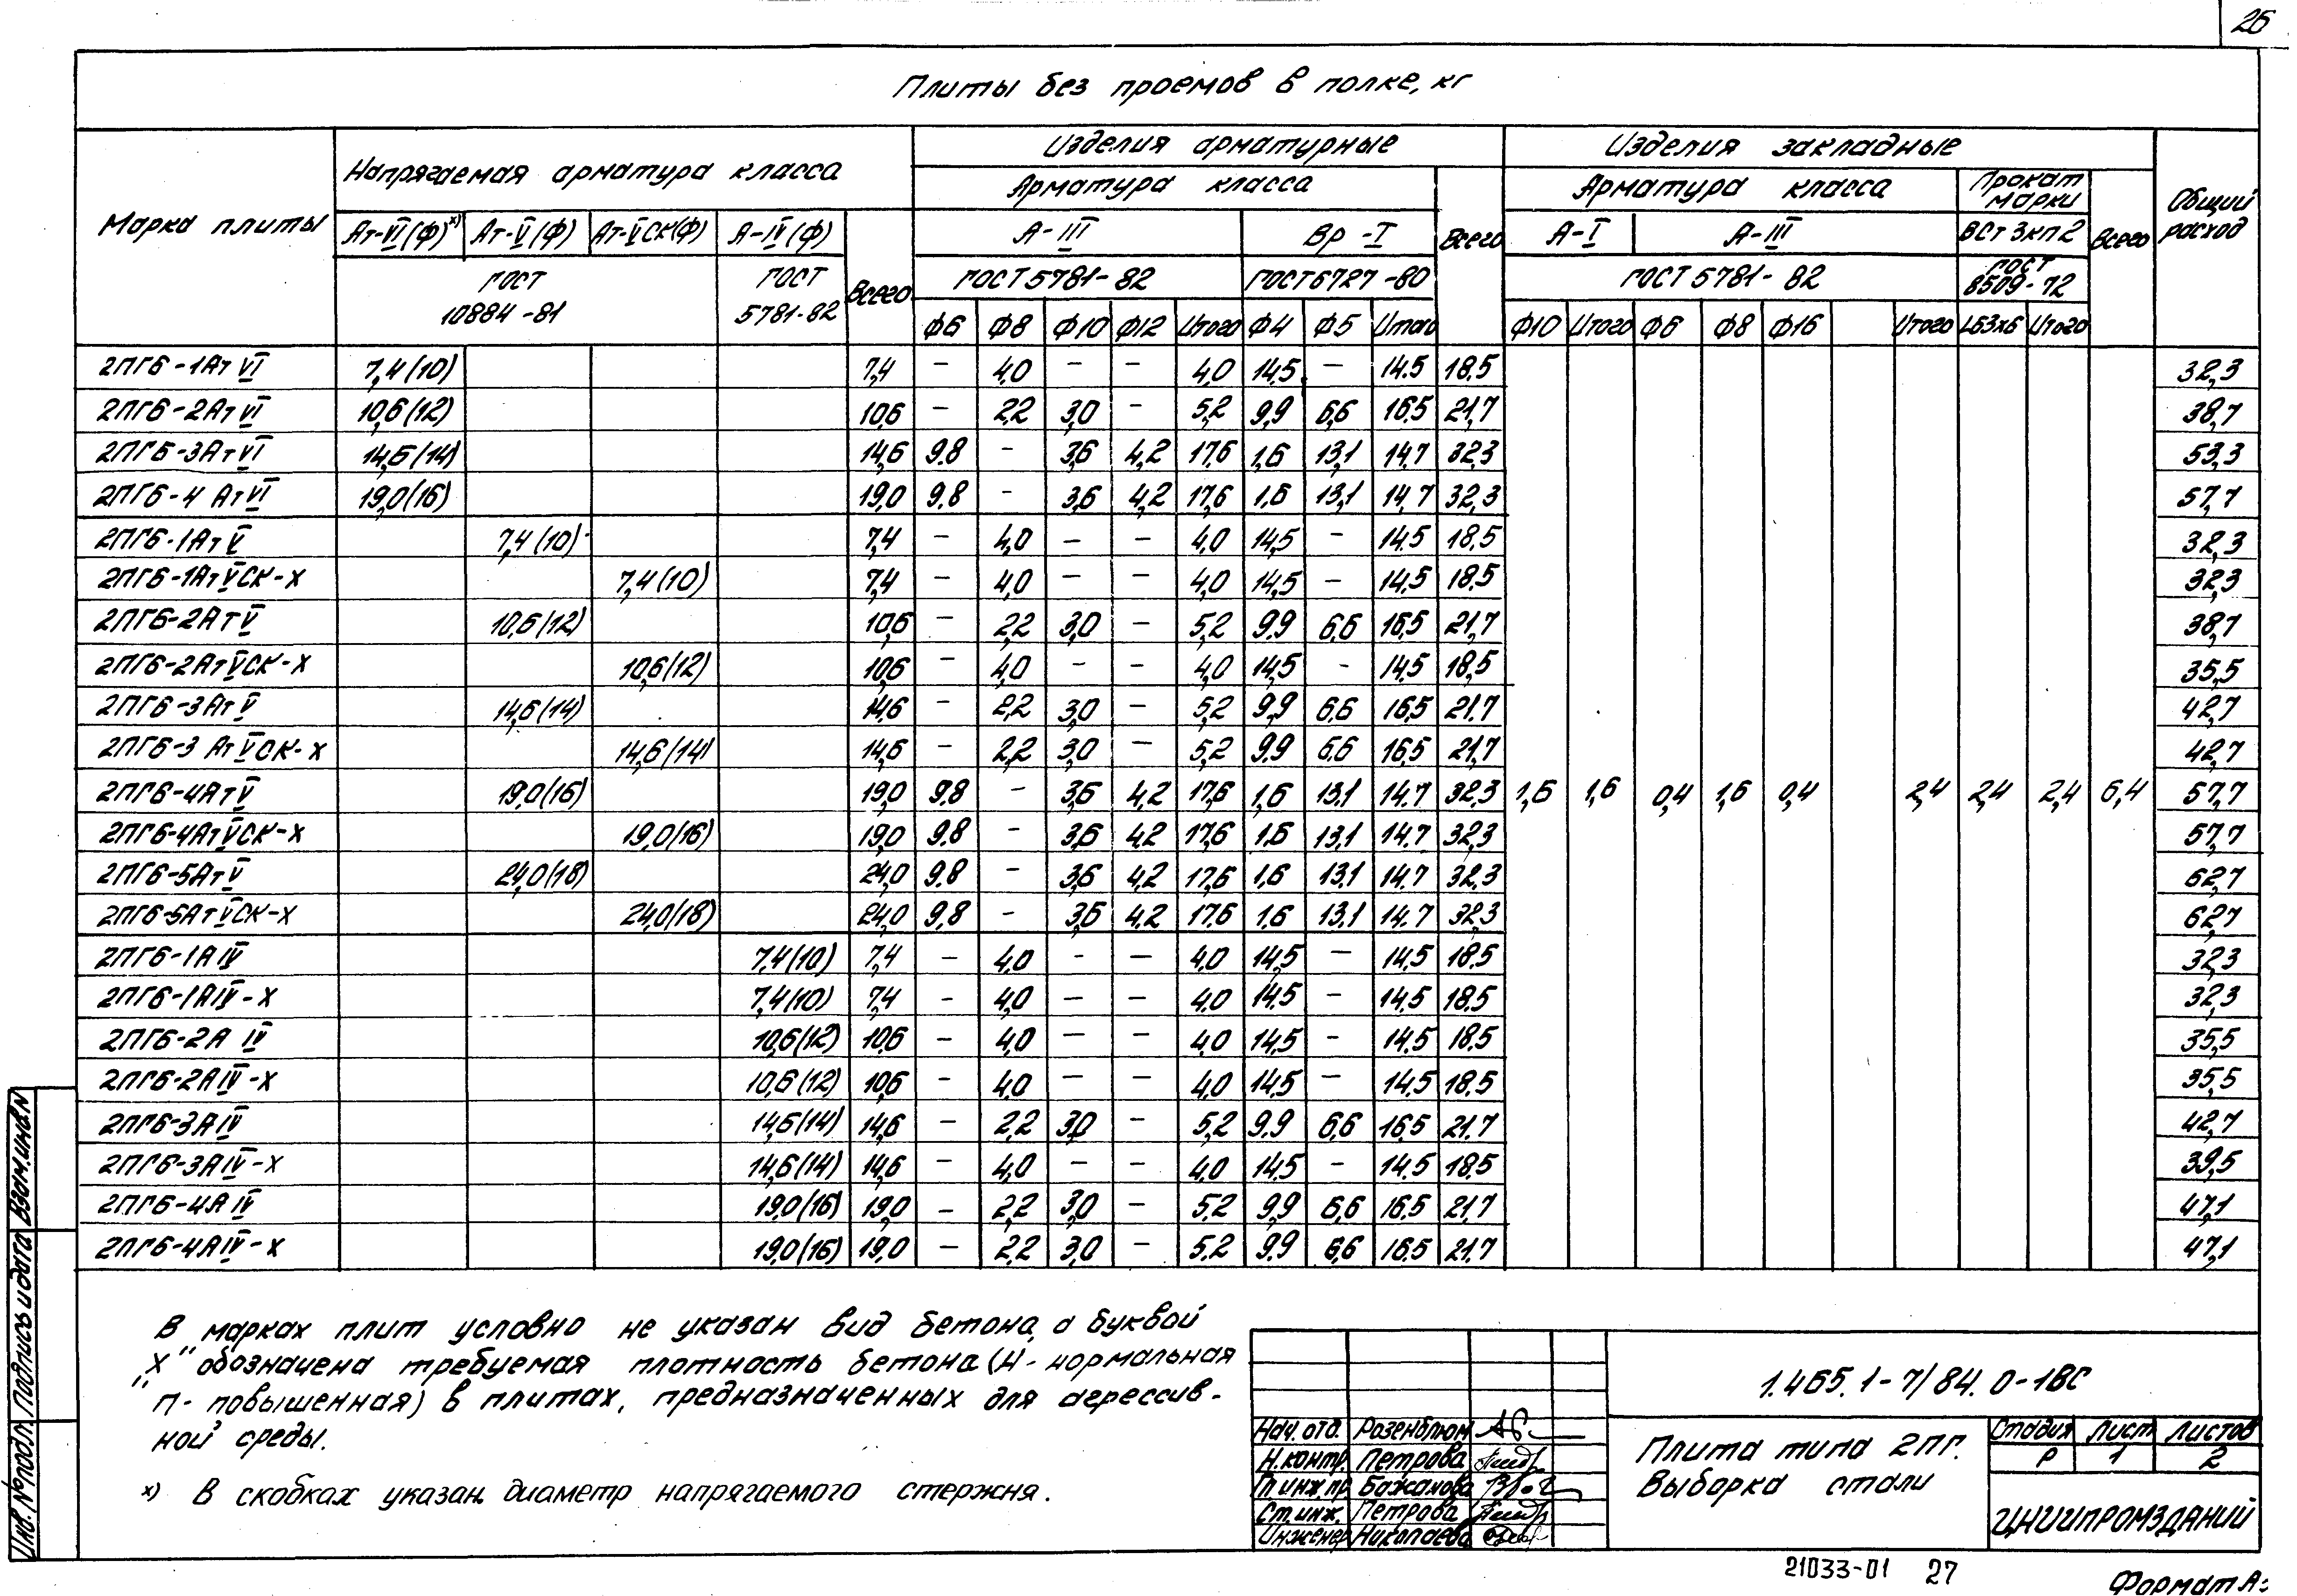 26
Плиты без проемов в полке, кг
Марка плиты
Напрягаемая арматура класса
Изделия арматурные
Изделия закладные
Общий расход
Арматура класса
Всего
Арматура класса
Прокат марки
Всего
Ат-VI(Ф)х) Ат-V(Ф) Ат-VСК(Ф) А-IV(Ф) Всего А-III Вр-I А-I А-III ВСт3кп2
ГОСТ 10884-81 ГОСТ 5781-82 ГОСТ 5781-82 ГОСТ 6727-80 ГОСТ 5781-82 ГОСТ 8509-72
Ф6 Ф8 Ф10 Ф12 Итого Ф4 Ф5 Итого Ф10 Итого Ф6 Ф8 Ф16 Итого L63х6 Итого
2ПГ6-1АтVI 7,4(10) 7,4 – 4,0 – – 4,0 14,5 – 14.5 18,5 32,3
2ПГ6-2АтVI 10,6(12) 10,6 – 2,2 3,0 – 5,2 9,9 6,6 16,5 21,7 38,7
2ПГ6-3АтVI 14,6(14) 14,6 9.8 – 3,6 4,2 17,6 1,6 13,1 14,7 32,3 53,3
2ПГ6-4 АтVI 19,0(16) 19,0 9.8 – 3,6 4,2 17,6 1,6 13,1 14,7 32,3 57,7
2ПГ6-1АтV 7,4(10) 7,4 – 4,0 – – 4,0 14,5 – 14,5 18,5 32,3
2ПГ6-1АтVСК-Х 7,4(10) 7,4 – 4,0 – – 4,0 14,5 – 14,5 18,5 32,3
2ПГ6-2АтV 10,6(12) 10,6 – 2,2 3,0 – 5,2 9,9 6,6 16,5 21,7 38,7
2ПГ6-2АтVСК-Х 10,6(12) 10,6 – 4,0 – – 4,0 14,5 – 14,5 18,5 35,5
2ПГ6-3АтV 14,6(14) 14,6 – 2,2 3,0 – 5,2 9,9 6,6 16,5 21,7 42,7
2ПГ6-3 АтVСК-Х 14,6(14) 14,6 – 2,2 3,0 – 5,2 9,9 6,6 16,5 21,7 42,7
2ПГ6-4АтV 19,0(16) 19,0 9.8 – 3,6 4,2 17,6 1,6 13,1 14.7 32,3 1,6 1,6 0,4 1,6 0,4 2,4 2,4 2,4 6,4 57,7
2ПГ6-4АтVСК-Х 19,0(16) 19,0 9.8 – 3,6 4,2 17,6 1,6 13,1 14,7 32,3 57,7
2ПГ6-5АтV 24,0(18) 24,0 9.8 – 3,6 4,2 17,6 1,6 13,1 14,7 32,3 62,7
2ПГ6-5АтVСК-Х 24,0(18) 24,0 9,8 – 3,6 4,2 17,6 1,6 13,1 14,7 32,3 62,7
2ПГ6-1АIV 7,4(10) 7,4 – 4,0 – – 4,0 14,5 – 14,5 18,5 32,3
2ПГ6-1АIV-Х 7,4(10) 7,4 – 4,0 – – 4,0 14,5 – 14,5 18,5 32,3
2ПГ6-2А IV 10,6(12) 10,6 – 4,0 – – 4,0 14,5 – 14,5 18,5 35,5
2ПГ6-2АIV-Х 10,6(12) 10,6 – 4,0 – – 4,0 14,5 – 14,5 18,5 35,5
2ПГ6-3АIV 14,6(14) 14,6 – 2,2 3,0 – 5,2 9,9 6,6 16,5 21,7 42,7
2ПГ6-3АIV-Х 14,6(14) 14,6 – 4,0 – – 4,0 14,5 – 14,5 18,5 39,5
2ПГ6-4АIV 19,0(16) 19,0 – 2,2 3,0 – 5,2 9,9 6,6 16,5 21,7 47,1
2ПГ6-4АIV-Х 19,0(16) 19,0 – 2,2 3,0 – 5,2 9,9 6,6 16,5 21,7 47,1
В марках плит условно не указан вид бетона, а буквой
„Х" обозначена требуемая плотность бетона (Н-нормальная
П- повышенная) в плитах, предназначенных для агрессив-
ной среды.
х) В скобках указан диаметр напрягаемого стержня.
1.465.1-7/84.0-1ВС
Нач. отд. Розенблюм
Н.контр. Петрова
Гл.инж.пр. Бажанова
Ст.инж. Петрова
Инженер Николаева
Плита типа 2ПГ.
Выборка стали
Стадия Лист Листов
Р 1 2
ЦНИИПРОМЗДАНИЙ
Инв.№подл. Подпись и дата Взам.инв.№
21033-01 27
Формат А3